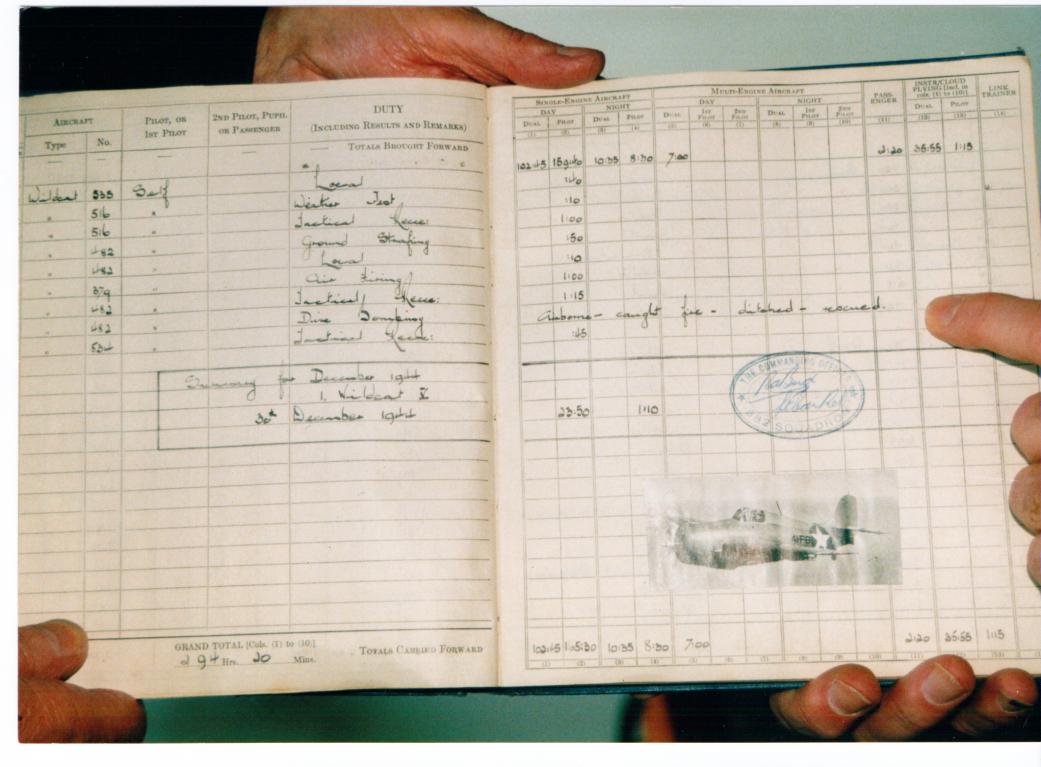 AIRCRAFT
PILOT, OR 1ST PILOT
2ND PILOT, PUPIL OR PASSENGER
DUTY (INCLUDING RESULTS AND REMARKS)
Type No.
— — — — TOTALS BROUGHT FORWARD
SINGLE-ENGINE AIRCRAFT
MULTI-ENGINE AIRCRAFT
PASSENGER
INSTR/CLOUD FLYING [Incl. in cols. (1) to (10)]
LINK TRAINER
DAY NIGHT DAY NIGHT
DUAL PILOT DUAL PILOT DUAL 1ST PILOT 2ND PILOT DUAL 1ST PILOT 2ND PILOT DUAL PILOT
(1) (2) (3) (4) (5) (6) (7) (8) (9) (10) (11) (12) (13) (14)
102:45 10:35 8:30 7:00 2:20 35:55 1:15
Wildcat 535 Self Local :40
" 516 " Weather Test :10
" 516 " Tactical Recce: 1:00
" 482 " Ground Strafing :50
" 482 " Local
" 379 " Air Firing 1:00
" 482 " Tactical Recce: 1:15
" 482 " Dive Bombing Airborne - caught fire - ditched - rescued.
" 534 " Tactical Recce: :45
Summary for December 1944
1. Wildcat V
30th December 1944
23:50 1:10
THE COMMANDING OFFICER
882 SQUADRON
GRAND TOTAL [Cols. (1) to (10)]
294 Hrs. 20 Mins.
TOTALS CARRIED FORWARD
102:45 10:35 8:30 7:00 2:20 35:55 1:15
(1) (2) (3) (4) (5) (6) (7) (8) (9) (10) (11) (12) (13)